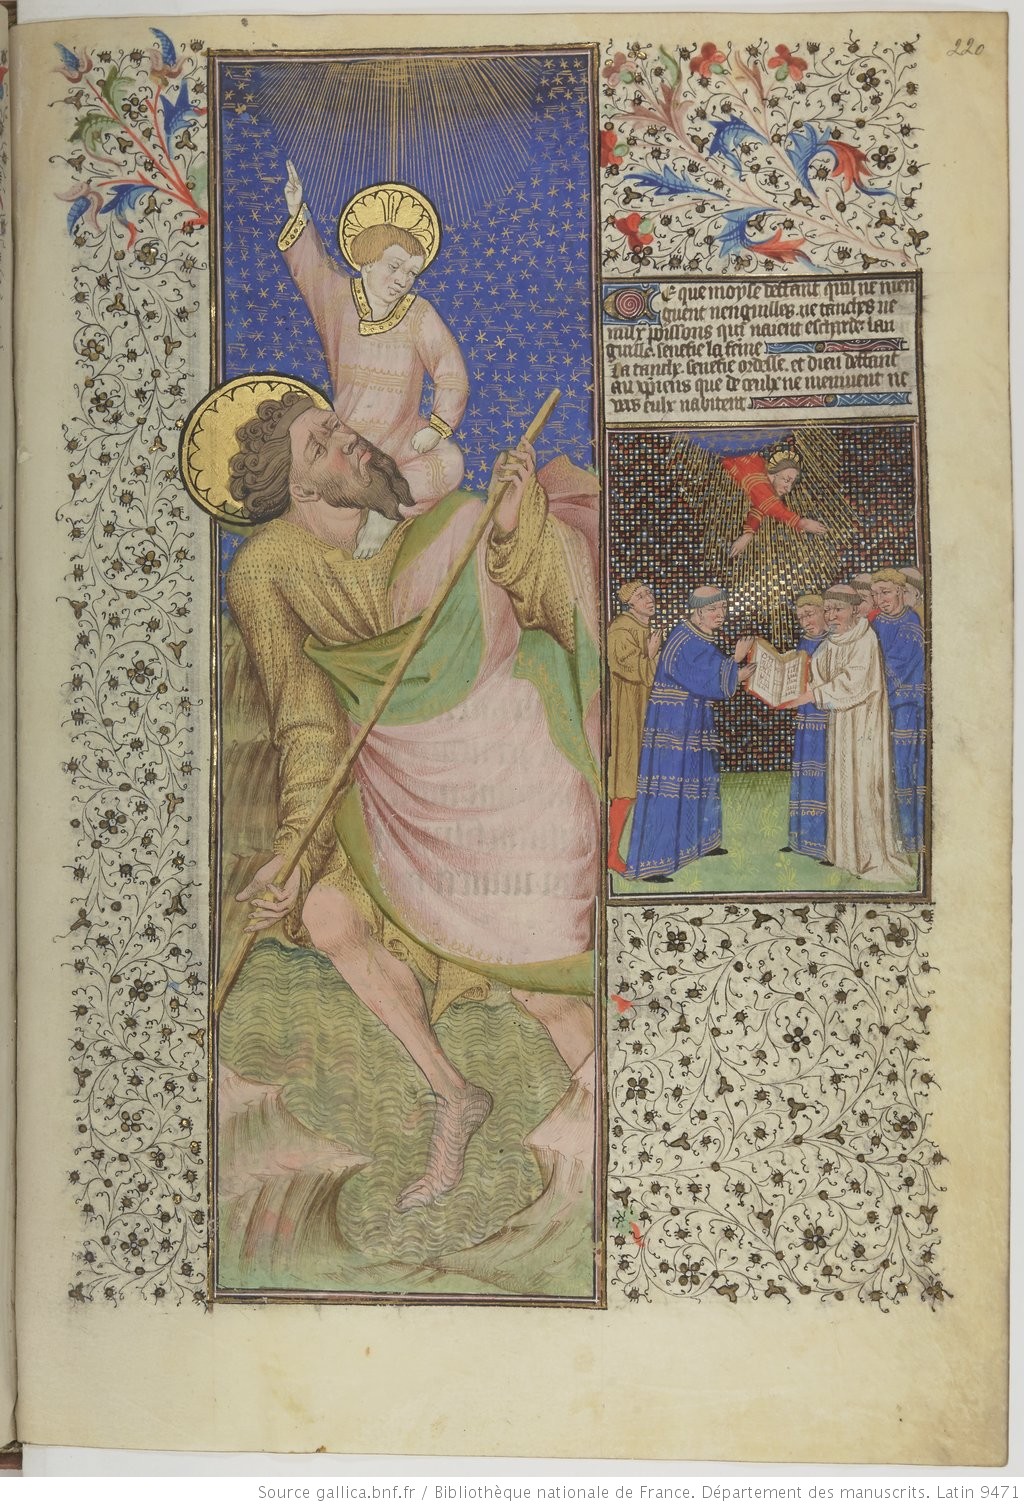 220
Ce que moyse deffant quil ne mien
guent nenguilles. ne tanches ne
nulx poissons qui naient escharde lan
guille senefie la feme
La tanche senefie ordesse. et dieu deffant
aux xpiens que de ceulx ne menuent ne
vers eulx nabitent
Source gallica.bnf.fr / Bibliothèque nationale de France. Département des manuscrits. Latin 9471